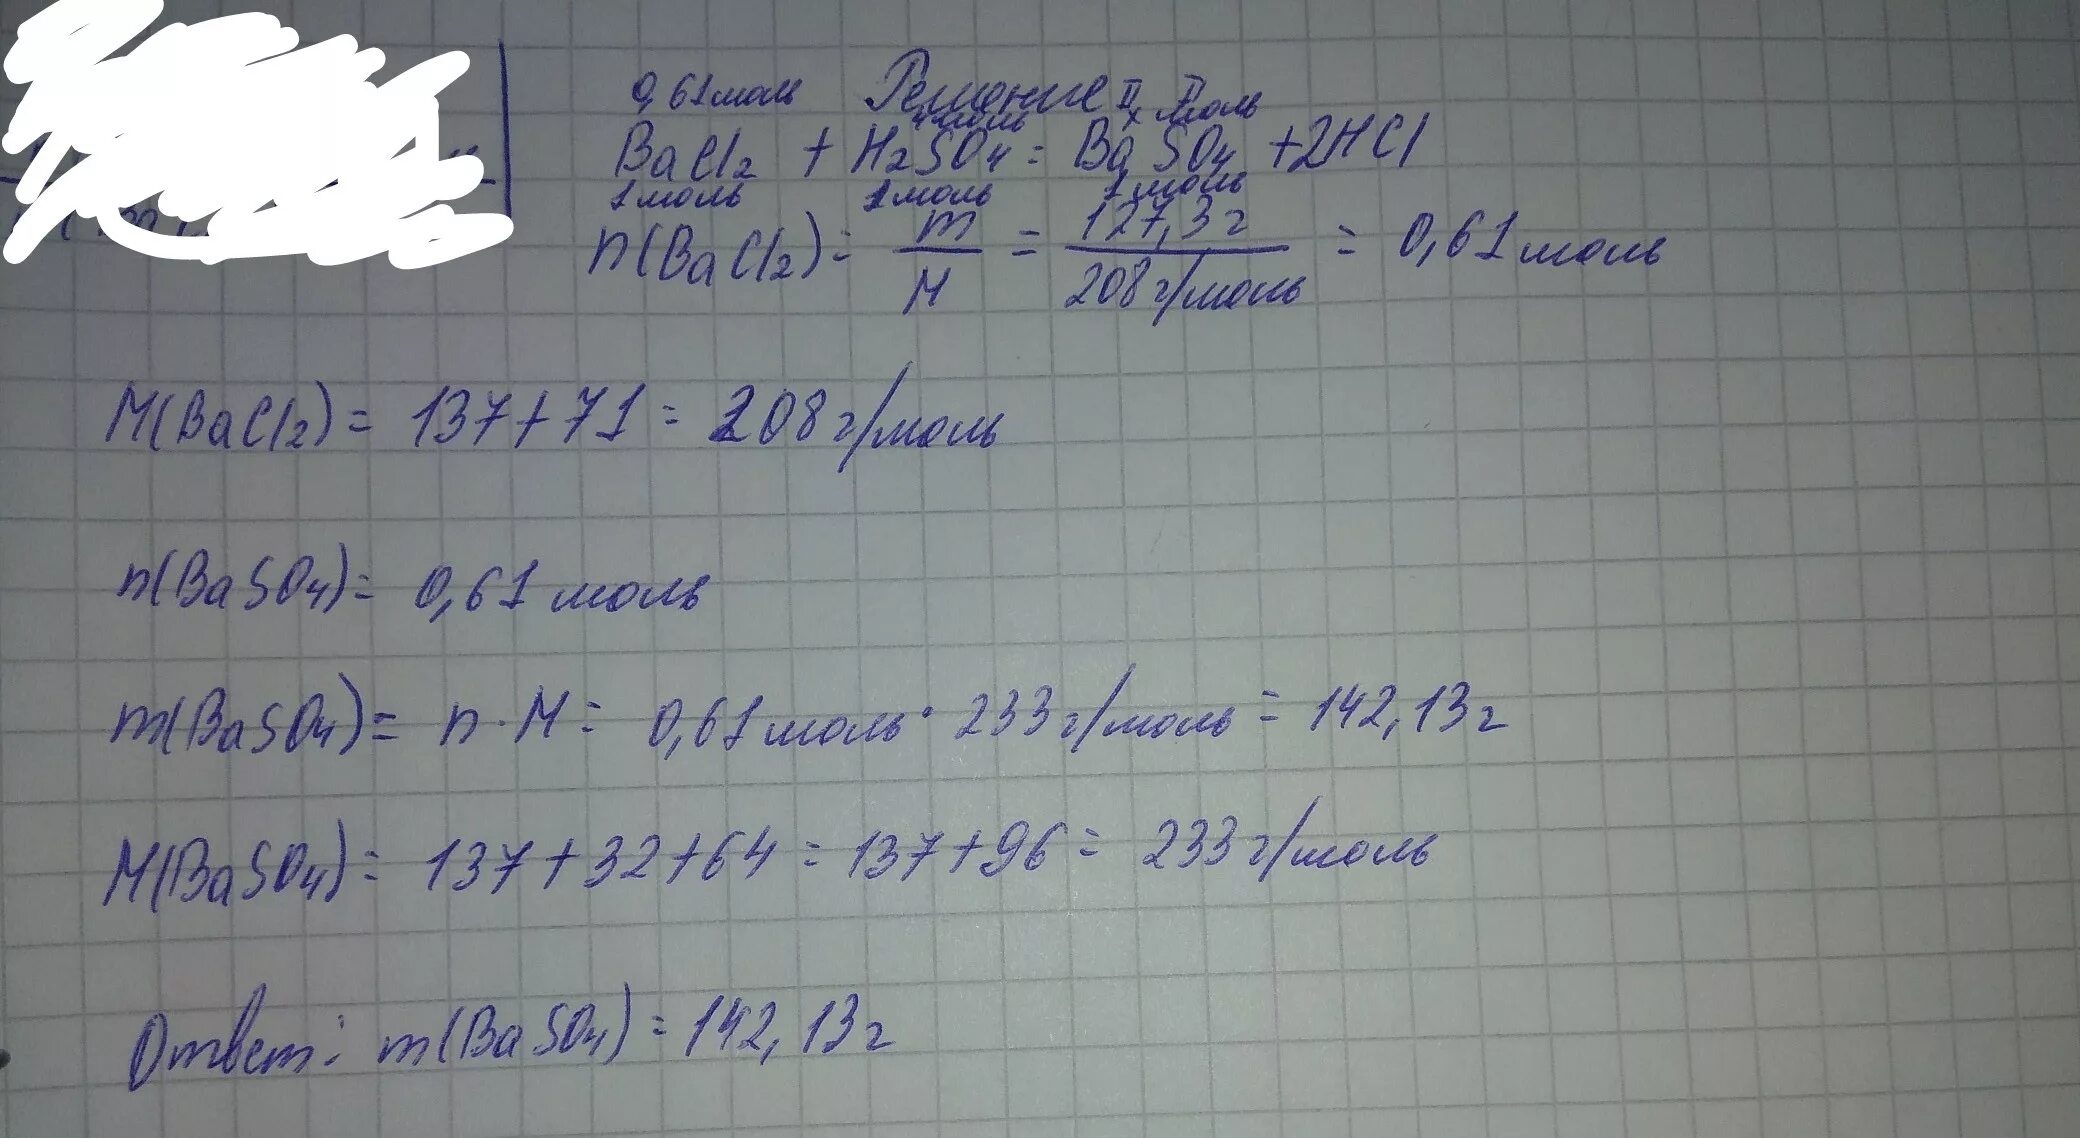 0,61 моль Решение II II
4 моль x моль
BaCl₂ + H₂SO₄ = BaSO₄ + 2HCl
1 моль 1 моль 1 моль
n(BaCl₂) = m/M = 127,3 г/208 г/моль = 0,61 моль
M(BaCl₂) = 137 + 71 = 208 г/моль
n(BaSO₄) = 0,61 моль
m(BaSO₄) = n · M = 0,61 моль · 233 г/моль = 142,13 г
M(BaSO₄) = 137 + 32 + 64 = 137 + 96 = 233 г/моль
Ответ: m(BaSO₄) = 142,13 г